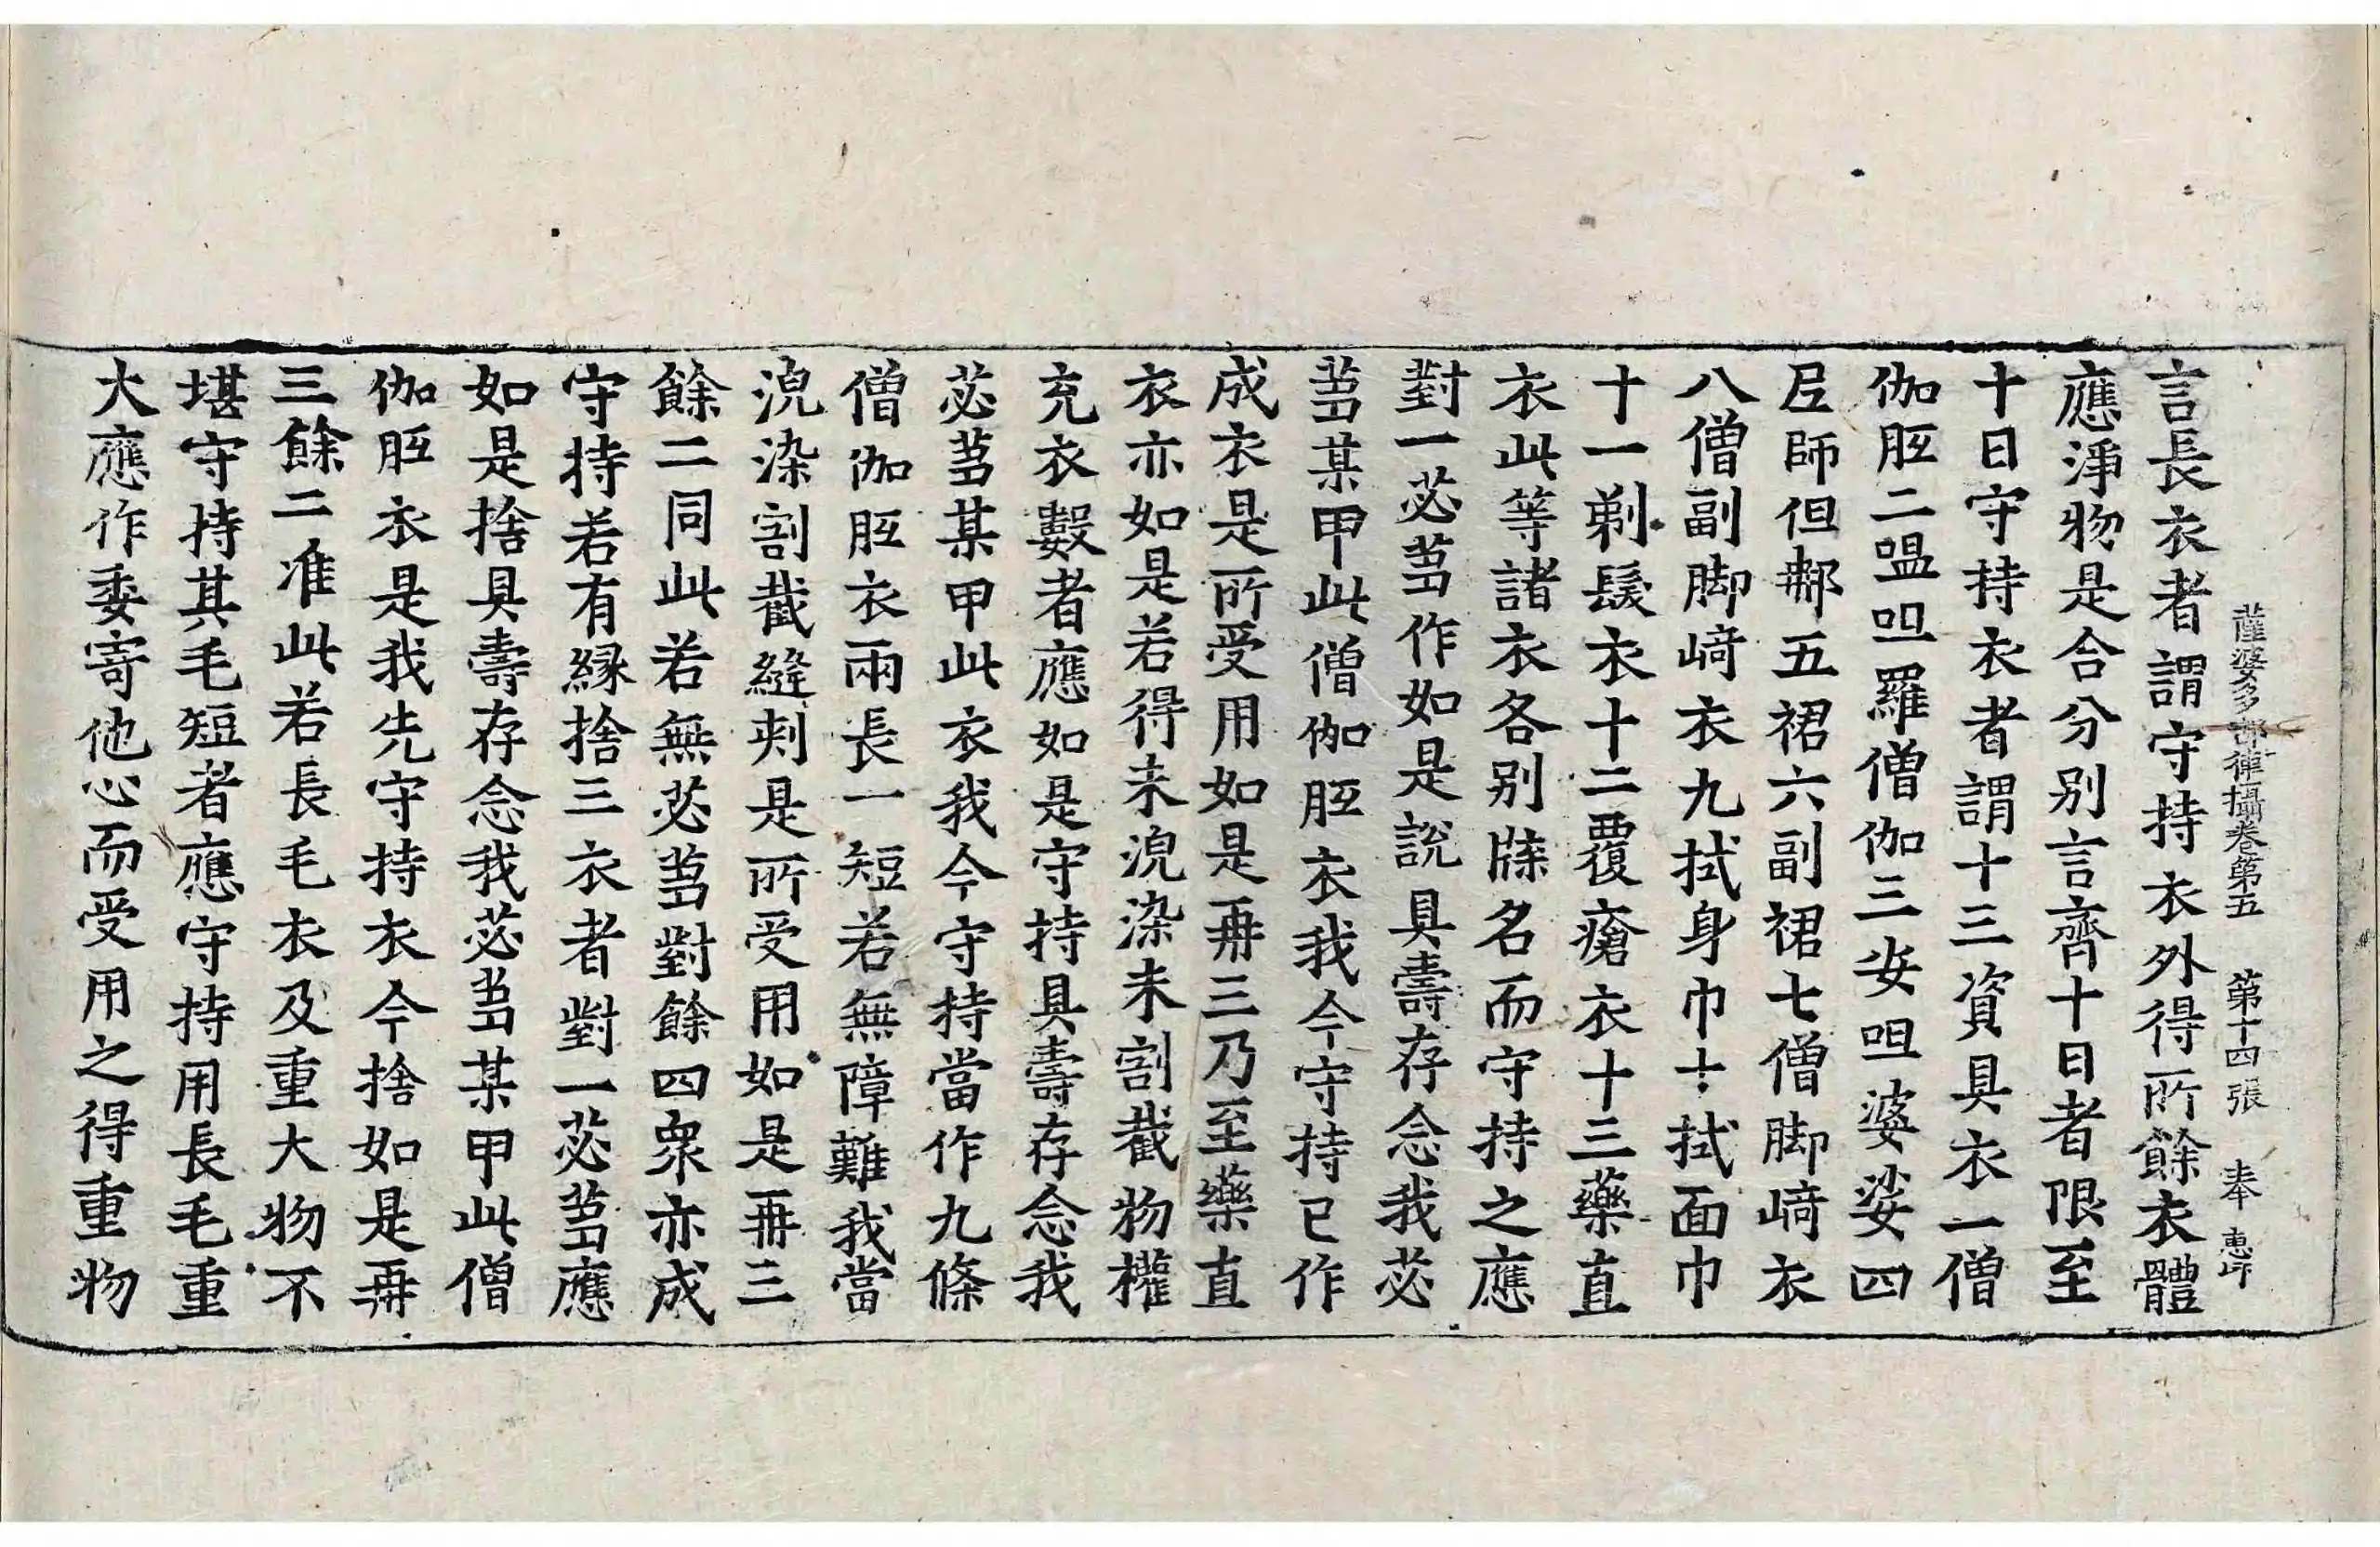 薩婆多部律攝卷第五　第十四張　奉　惠印
言長衣者謂守持衣外得所餘衣體
應淨物是合分别言齊十日者限至
十日守持衣者謂十三資具衣一僧
伽胝二嗢呾羅僧伽三安呾婆娑四
尼師但那五裙六副裙七僧脚崎衣
八僧副脚崎衣九拭身巾十拭面巾
十一剃髮衣十二覆瘡衣十三藥直
衣此等諸衣各别牒名而守持之應
對一苾芻作如是說具壽存念我苾
芻某甲此僧伽胝衣我今守持已作
成衣是所受用如是再三乃至藥直
衣亦如是若得未浣染未割截物權
充衣數者應如是守持具壽存念我
苾芻某甲此衣我今守持當作九條
僧伽胝衣兩長一短若無障難我當
浣染割截縫刺是所受用如是再三
餘二同此若無苾芻對餘四衆亦成
守持若有縁捨三衣者對一苾芻應
如是捨具壽存念我苾芻某甲此僧
伽胝衣是我先守持衣今捨如是再
三餘二准此若長毛衣及重大物不
堪守持其毛短者應守持用長毛重
大應作委寄他心而受用之得重物